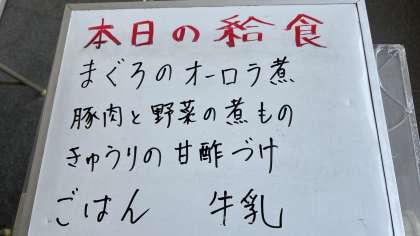 本日の給食
まぐろのオーロラ煮
豚肉と野菜の煮もの
きゅうりの甘酢づけ
ごはん　牛乳